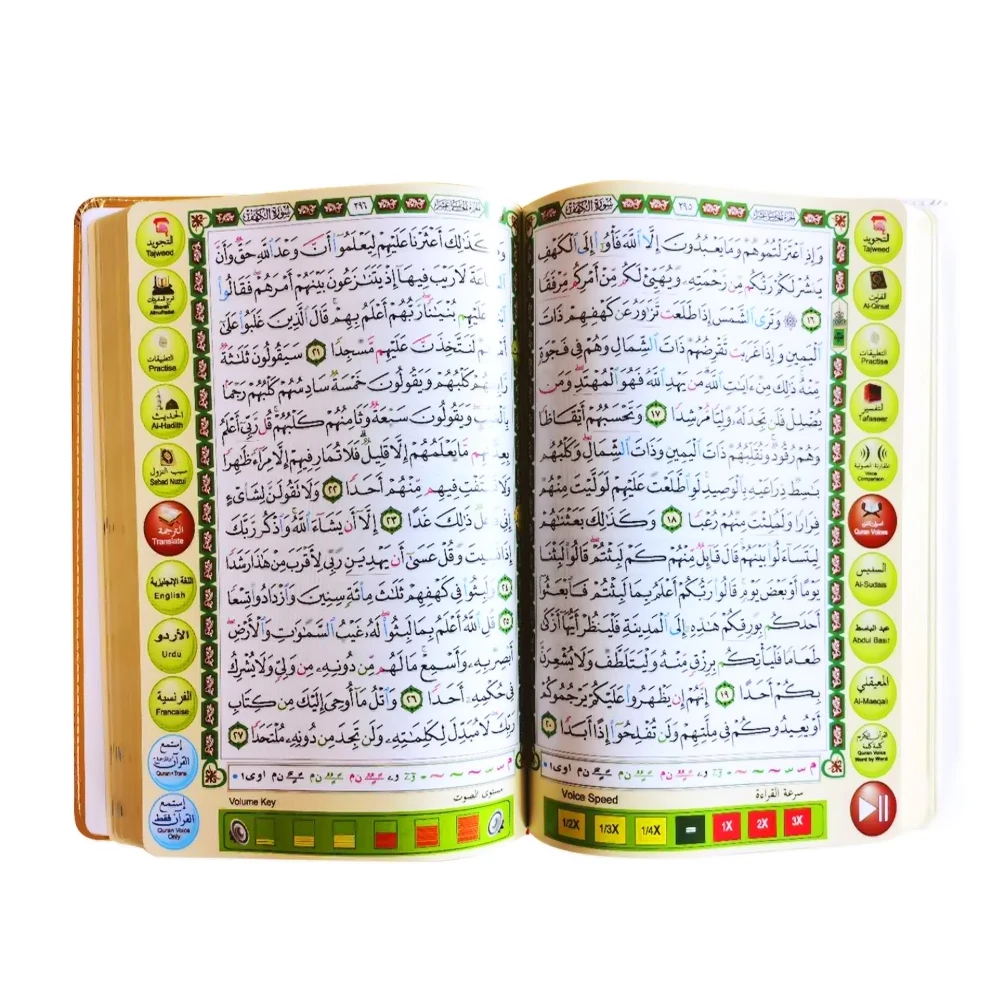 سورة الكهف ٢٩٥
وَإِذِ ٱعْتَزَلْتُمُوهُمْ وَمَا يَعْبُدُونَ إِلَّا ٱللَّهَ فَأْوُۥٓا۟ إِلَى ٱلْكَهْفِ
يَنشُرْ لَكُمْ رَبُّكُم مِّن رَّحْمَتِهِۦ وَيُهَيِّئْ لَكُم مِّنْ أَمْرِكُم مِّرْفَقًا
١٦ ۞ وَتَرَى ٱلشَّمْسَ إِذَا طَلَعَت تَّزَٰوَرُ عَن كَهْفِهِمْ ذَاتَ
ٱلْيَمِينِ وَإِذَا غَرَبَت تَّقْرِضُهُمْ ذَاتَ ٱلشِّمَالِ وَهُمْ فِى فَجْوَةٍ
مِّنْهُ ذَٰلِكَ مِنْ ءَايَٰتِ ٱللَّهِ مَن يَهْدِ ٱللَّهُ فَهُوَ ٱلْمُهْتَدِ وَمَن
يُضْلِلْ فَلَن تَجِدَ لَهُۥ وَلِيًّا مُّرْشِدًا ١٧ وَتَحْسَبُهُمْ أَيْقَاظًا
وَهُمْ رُقُودٌ وَنُقَلِّبُهُمْ ذَاتَ ٱلْيَمِينِ وَذَاتَ ٱلشِّمَالِ وَكَلْبُهُم
بَٰسِطٌ ذِرَاعَيْهِ بِٱلْوَصِيدِ لَوِ ٱطَّلَعْتَ عَلَيْهِمْ لَوَلَّيْتَ مِنْهُمْ
فِرَارًا وَلَمُلِئْتَ مِنْهُمْ رُعْبًا ١٨ وَكَذَٰلِكَ بَعَثْنَٰهُمْ
لِيَتَسَآءَلُوا۟ بَيْنَهُمْ قَالَ قَآئِلٌ مِّنْهُمْ كَمْ لَبِثْتُمْ قَالُوا۟ لَبِثْنَا
يَوْمًا أَوْ بَعْضَ يَوْمٍ قَالُوا۟ رَبُّكُمْ أَعْلَمُ بِمَا لَبِثْتُمْ فَٱبْعَثُوٓا۟
أَحَدَكُم بِوَرِقِكُمْ هَٰذِهِۦٓ إِلَى ٱلْمَدِينَةِ فَلْيَنظُرْ أَيُّهَآ أَزْكَىٰ
طَعَامًا فَلْيَأْتِكُم بِرِزْقٍ مِّنْهُ وَلْيَتَلَطَّفْ وَلَا يُشْعِرَنَّ
بِكُمْ أَحَدًا ١٩ إِنَّهُمْ إِن يَظْهَرُوا۟ عَلَيْكُمْ يَرْجُمُوكُمْ
أَوْ يُعِيدُوكُمْ فِى مِلَّتِهِمْ وَلَن تُفْلِحُوٓا۟ إِذًا أَبَدًا ٢٠
التجويد
Tajweed
Al-Qiraat
التطبيقات
Practise
التفسير
Tafaseer
المقارنة الصوتية
Voice Comparison
Quran Voices
السديس
Al-Sudais
عبد الباسط
Abdul Basir
المعيقلي
Al-Maeqali
Quran Voice
Word by Word
Voice Speed سرعة القراءة
1/2X 1/3X 1/4X = 1X 2X 3X
سورة الكهف ٢٩٦
كَذَٰلِكَ أَعْثَرْنَا عَلَيْهِمْ لِيَعْلَمُوٓا۟ أَنَّ وَعْدَ ٱللَّهِ حَقٌّ وَأَنَّ
لَا رَيْبَ فِيهَآ إِذْ يَتَنَٰزَعُونَ بَيْنَهُمْ أَمْرَهُمْ فَقَالُوا۟
عَلَيْهِم بُنْيَٰنًا رَّبُّهُمْ أَعْلَمُ بِهِمْ قَالَ ٱلَّذِينَ غَلَبُوا۟ عَلَىٰٓ
لَنَتَّخِذَنَّ عَلَيْهِم مَّسْجِدًا ٢١ سَيَقُولُونَ ثَلَٰثَةٌ
كَلْبُهُمْ وَيَقُولُونَ خَمْسَةٌ سَادِسُهُمْ كَلْبُهُمْ رَجْمًۢا
وَيَقُولُونَ سَبْعَةٌ وَثَامِنُهُمْ كَلْبُهُمْ قُل رَّبِّىٓ أَعْلَمُ
مَّا يَعْلَمُهُمْ إِلَّا قَلِيلٌ فَلَا تُمَارِ فِيهِمْ إِلَّا مِرَآءً ظَٰهِرًا
وَلَا تَسْتَفْتِ فِيهِم مِّنْهُمْ أَحَدًا ٢٢ وَلَا تَقُولَنَّ لِشَا۟ىْءٍ
إِنِّى ذَٰلِكَ غَدًا ٢٣ إِلَّآ أَن يَشَآءَ ٱللَّهُ وَٱذْكُر رَّبَّكَ
إِذَا نَسِيتَ وَقُلْ عَسَىٰٓ أَن يَهْدِيَنِ رَبِّى لِأَقْرَبَ مِنْ هَٰذَا رَشَدًا
٢٤ وَلَبِثُوا۟ فِى كَهْفِهِمْ ثَلَٰثَ مِا۟ئَةٍ سِنِينَ وَٱزْدَادُوا۟ تِسْعًا
٢٥ قُلِ ٱللَّهُ أَعْلَمُ بِمَا لَبِثُوا۟ لَهُۥ غَيْبُ ٱلسَّمَٰوَٰتِ وَٱلْأَرْضِ
أَبْصِرْ بِهِۦ وَأَسْمِعْ مَا لَهُم مِّن دُونِهِۦ مِن وَلِىٍّ وَلَا يُشْرِكُ
فِى حُكْمِهِۦٓ أَحَدًا ٢٦ وَٱتْلُ مَآ أُوحِىَ إِلَيْكَ مِن كِتَابِ
رَبِّكَ لَا مُبَدِّلَ لِكَلِمَٰتِهِۦ وَلَن تَجِدَ مِن دُونِهِۦ مُلْتَحَدًا ٢٧
التجويد
Tajweed
التطبيقات
Practise
الحديث
Al-Hadith
سبب النزول
Sabad Nuzul
الترجمة
Translate
اللغة الإنجليزية
English
الأردو
Urdu
الفرنسية
Francaise
إستمع
القرآن
Quran+Trans
إستمع
القرآن فقط
Quran Voice
Only
Volume Key مستوى الصوت